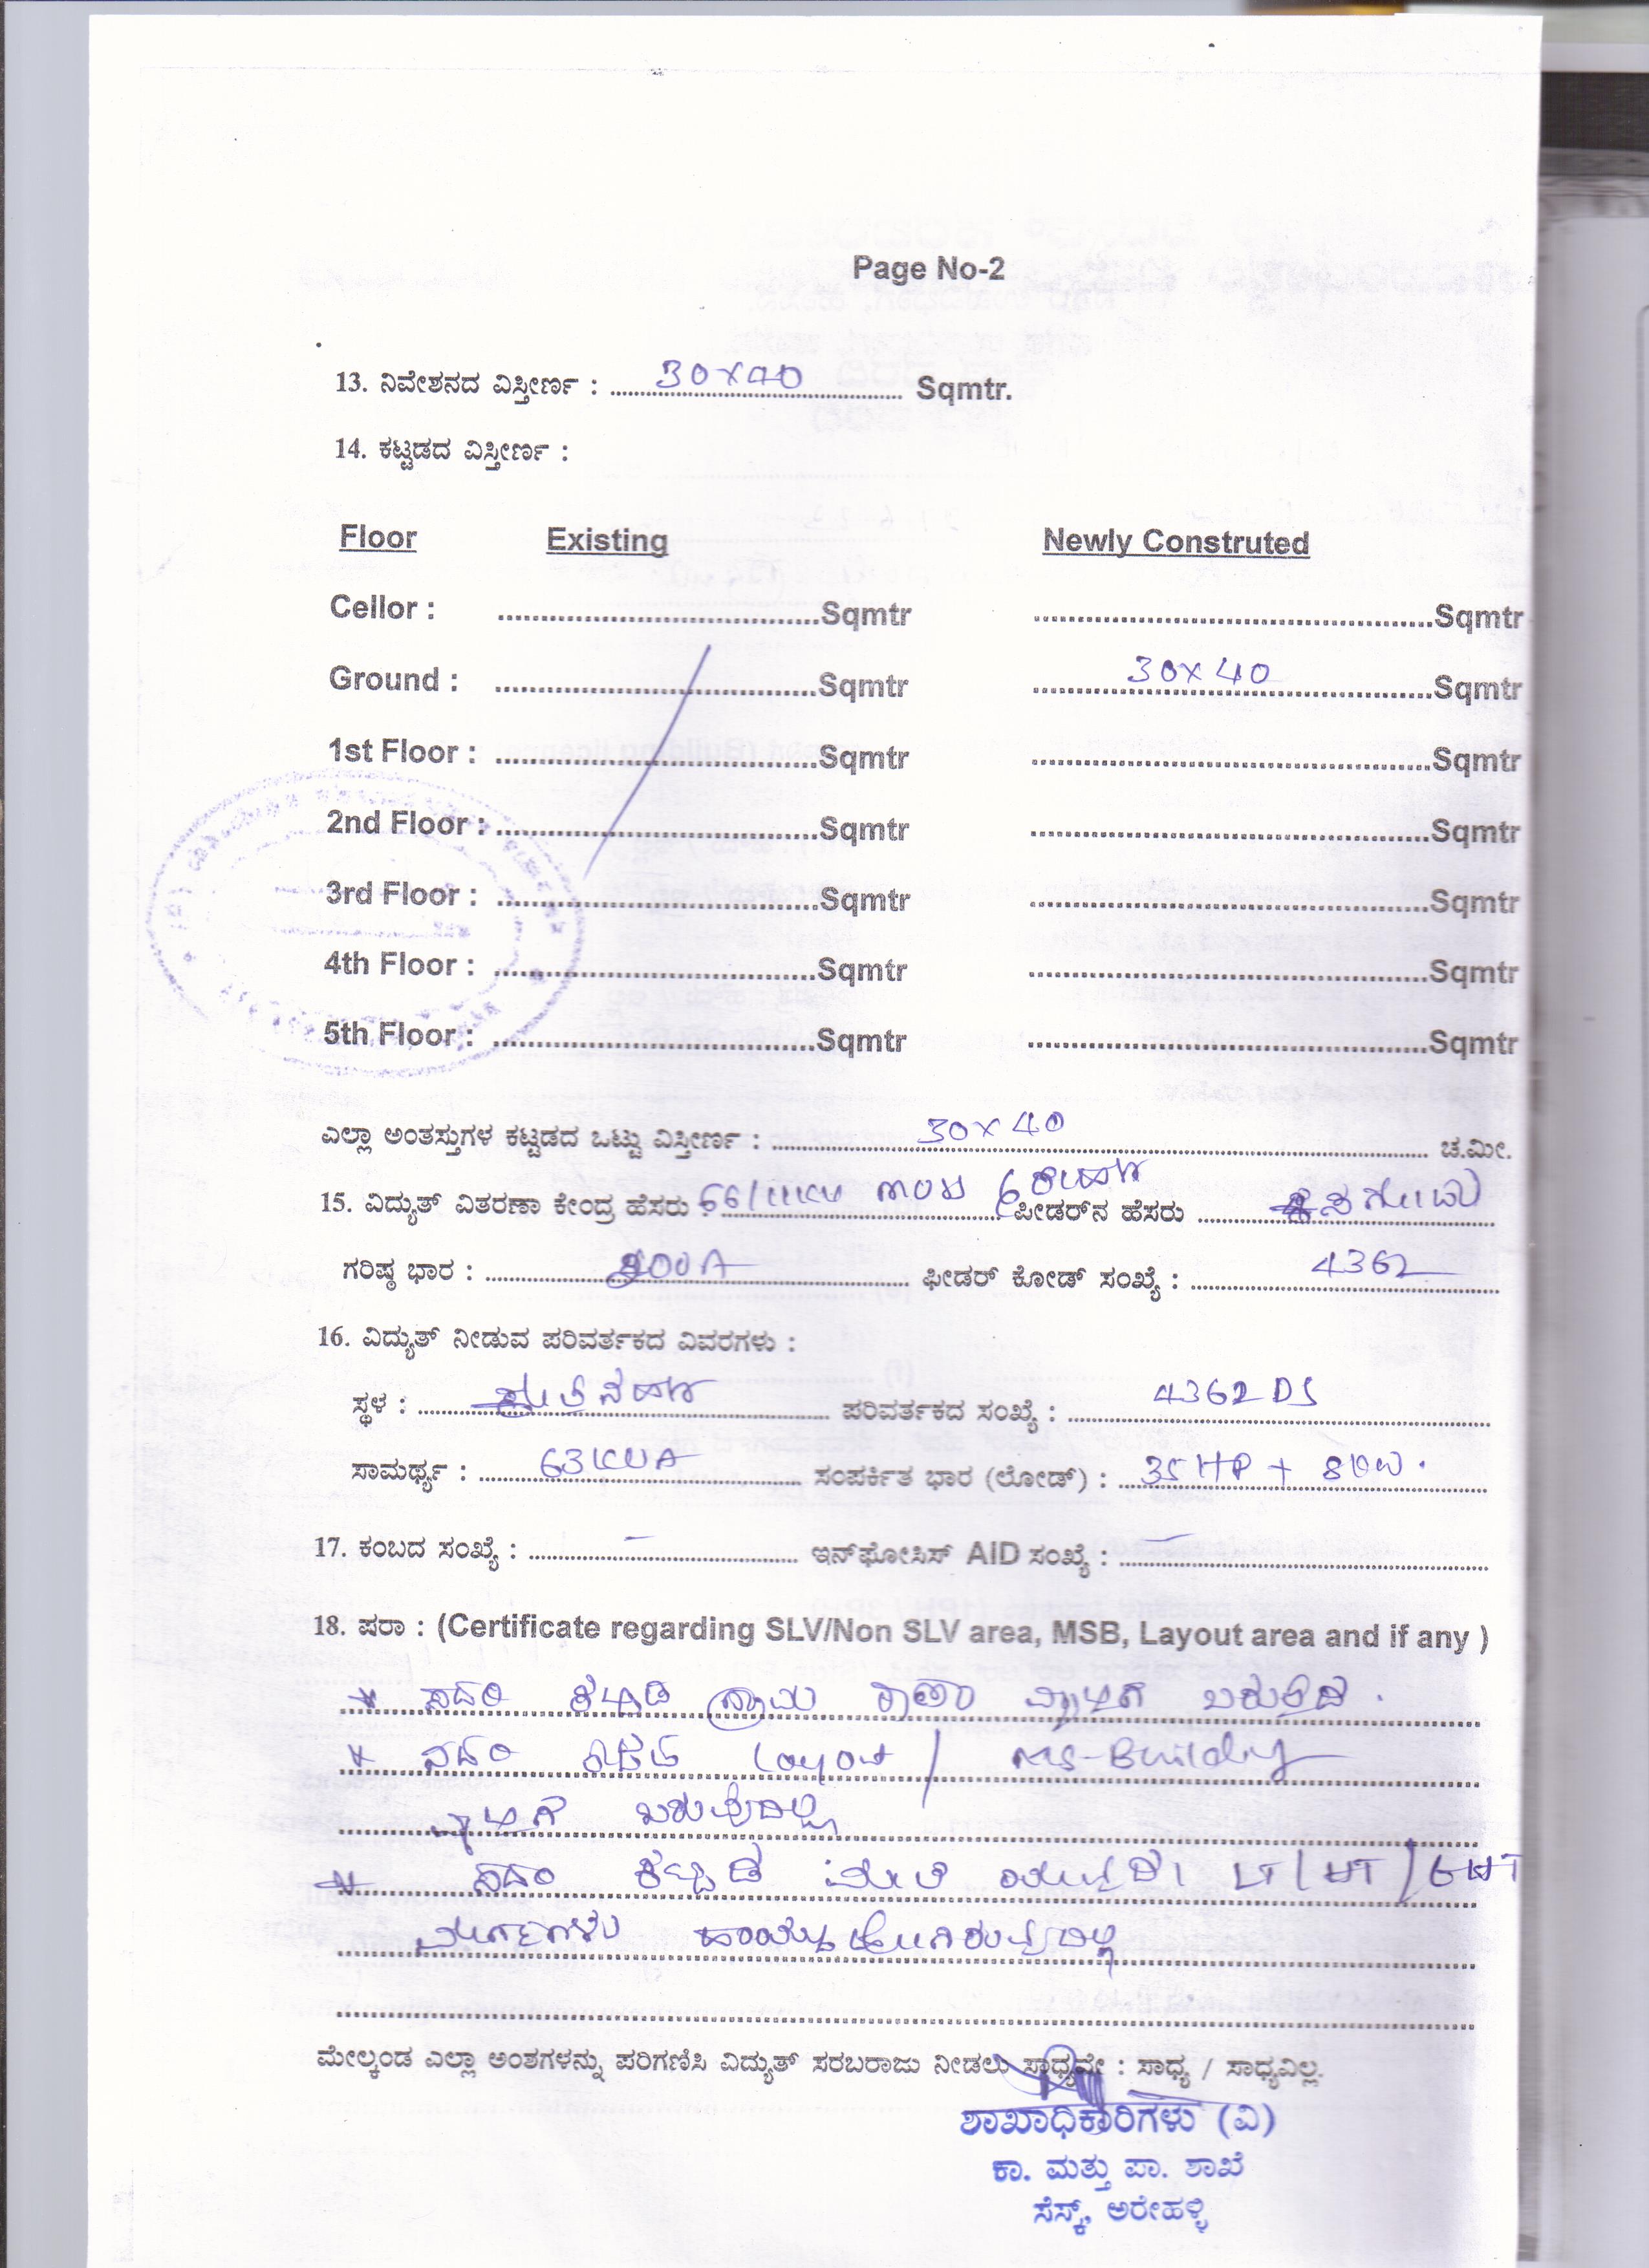 Page No-2
13. ನಿವೇಶನದ ವಿಸ್ತೀರ್ಣ : 30x40 Sqmtr.
14. ಕಟ್ಟಡದ ವಿಸ್ತೀರ್ಣ :
Floor Existing Newly Construted
Cellor : Sqmtr Sqmtr
Ground : Sqmtr 30x40 Sqmtr
1st Floor : Sqmtr Sqmtr
2nd Floor : Sqmtr Sqmtr
3rd Floor : Sqmtr Sqmtr
4th Floor : Sqmtr Sqmtr
5th Floor : Sqmtr Sqmtr
ಎಲ್ಲಾ ಅಂತಸ್ತುಗಳ ಕಟ್ಟಡದ ಒಟ್ಟು ವಿಸ್ತೀರ್ಣ : 30x40 ಚ.ಮೀ.
15. ವಿದ್ಯುತ್ ವಿತರಣಾ ಕೇಂದ್ರ ಹೆಸರು : 66/11KV ಫೀಡರ್‌ನ ಹೆಸರು
ಗರಿಷ್ಠ ಭಾರ : ಫೀಡರ್ ಕೋಡ್ ಸಂಖ್ಯೆ : 4362
16. ವಿದ್ಯುತ್ ನೀಡುವ ಪರಿವರ್ತಕದ ವಿವರಗಳು :
ಸ್ಥಳ : ಪರಿವರ್ತಕದ ಸಂಖ್ಯೆ : 4362 DS
ಸಾಮರ್ಥ್ಯ : 63 KVA ಸಂಪರ್ಕಿತ ಭಾರ (ಲೋಡ್) : 35 HP +
17. ಕಂಬದ ಸಂಖ್ಯೆ : – ಇನ್‌ಫೋಸಿಸ್ AID ಸಂಖ್ಯೆ : –
18. ಷರಾ : (Certificate regarding SLV/Non SLV area, MSB, Layout area and if any )
* ಸದರಿ ಕಟ್ಟಡ ಗ್ರಾಮ ಠಾಣಾ ವ್ಯಾಪ್ತಿಗೆ ಬರುತ್ತದೆ.
* ಸದರಿ ಕಟ್ಟಡ Layout / MS-Building
ವ್ಯಾಪ್ತಿಗೆ ಬರುವುದಿಲ್ಲ
* ಸದರಿ ಕಟ್ಟಡ ಮೇಲೆ ಯಾವುದೇ LT / HT / EHT
ಮಾರ್ಗಗಳು ಹಾಯ್ದುಹೋಗಿರುವುದಿಲ್ಲ
ಮೇಲ್ಕಂಡ ಎಲ್ಲಾ ಅಂಶಗಳನ್ನು ಪರಿಗಣಿಸಿ ವಿದ್ಯುತ್ ಸರಬರಾಜು ನೀಡಲು ಸಾಧ್ಯವೇ : ಸಾಧ್ಯ / ಸಾಧ್ಯವಿಲ್ಲ.
ಶಾಖಾಧಿಕಾರಿಗಳು (ವಿ)
ಕಾ. ಮತ್ತು ಪಾ. ಶಾಖೆ
ಸೆಸ್ಕ್, ಅರೇಹಳ್ಳಿ